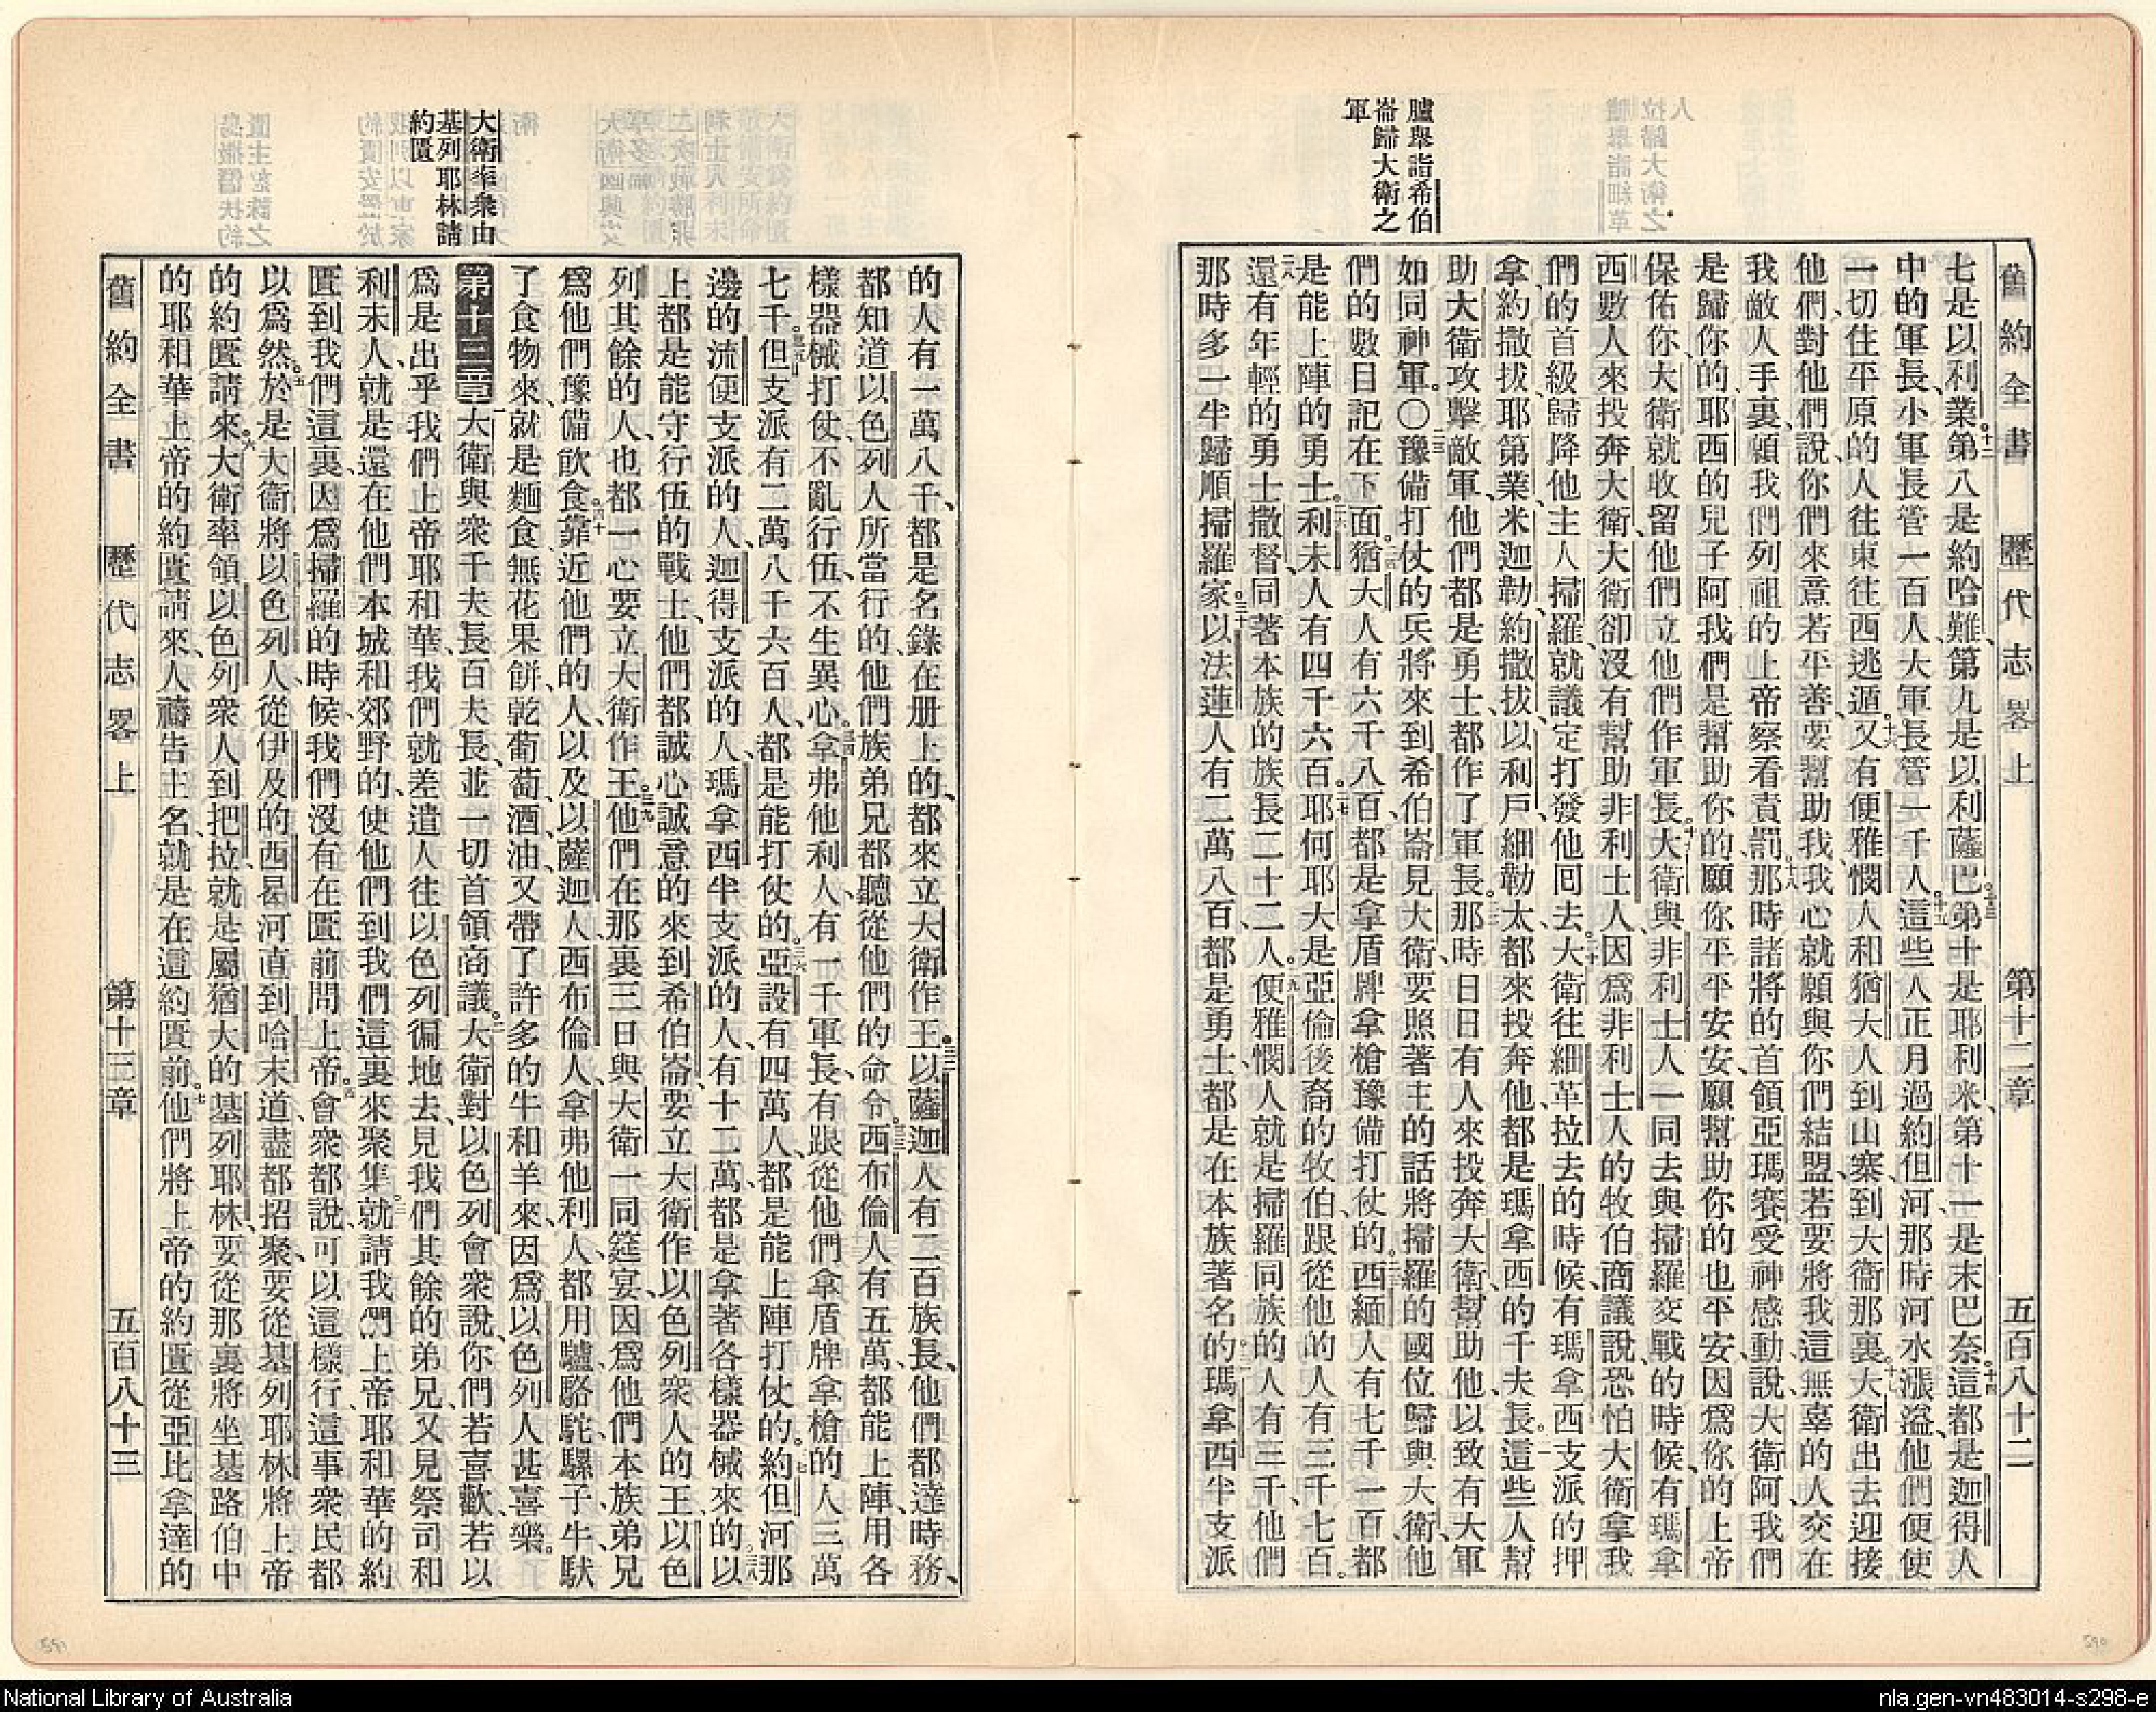 舊約全書 歷代志畧上 第十二章 五百八十二
臚舉詣希伯
崙歸大衛之
軍
七是以利業第八是約哈難第九是以利薩巴第十是耶利米第十一是末巴奈這都是迦得人
中的軍長小軍長管一百人大軍長管一千人這些人正月過約但河那時河水漲溢他們便使
一切住平原的人往東往西逃遁又有便雅憫人和猶大人到山寨到大衛那裏大衛出去迎接
他們對他們說你們來意若平善要幫助我我心就願與你們結盟若要將我這無辜的人交在
我敵人手裏願我們列祖的上帝察看責罰那時諸將的首領亞瑪賽受神感動說大衛阿我們
是歸你的耶西的兒子阿我們是幫助你的願你平平安安願幫助你的也平安因爲你的上帝
保佑你大衛就收留他們立他們作軍長大衛與非利士人一同去與掃羅交戰的時候有瑪拿
西數人來投奔大衛大衛卻沒有幫助非利士人因爲非利士人的牧伯商議說恐怕大衛拿我
們的首級歸降他主人掃羅就議定打發他回去大衛往細革拉去的時候有瑪拿西支派的押
拿約撒拔耶第業米迦勒約撒拔以利戶細勒太都來投奔他都是瑪拿西的千夫長這些人幫
助大衛攻擊敵軍他們都是勇士都作了軍長那時日日有人來投奔大衛幫助他以致有大軍
如同神軍〇豫備打仗的兵將來到希伯崙見大衛要照著主的話將掃羅的國位歸與大衛他
們的數目記在下面猶大人有六千八百都是拿盾牌拿槍豫備打仗的西緬人有七千一百都
是能上陣的勇士利未人有四千六百耶何耶大是亞倫後裔的牧伯跟從他的人有三千七百
還有年輕的勇士撒督同著本族的族長二十二人便雅憫人就是掃羅同族的人有三千他們
那時多一半歸順掃羅家以法蓮人有二萬八百都是勇士都是在本族著名的瑪拿西半支派
大衛率衆由
基列耶林請
約匱
的人有一萬八千都是名錄在册上的都來立大衛作王以薩迦人有二百族長他們都達時務
都知道以色列人所當行的他們族弟兄都聽從他們的命令西布倫人有五萬都能上陣用各
樣器械打仗不亂行伍不生異心拿弗他利人有一千軍長有跟從他們拿盾牌拿槍的人三萬
七千但支派有二萬八千六百人都是能打仗的亞設有四萬人都是能上陣打仗的約但河那
邊的流便支派的人迦得支派的人瑪拿西半支派的人有十二萬都是拿著各樣器械來的以
上都是能守行伍的戰士他們都誠心誠意的來到希伯崙要立大衛作以色列衆人的王以色
列其餘的人也都一心要立大衛作王他們在那裏三日與大衛一同筵宴因爲他們本族弟兄
爲他們豫備飲食靠近他們的人以及以薩迦人西布倫人拿弗他利人都用驢駱駝騾子牛馱
了食物來就是麵食無花果餅乾葡萄酒油又帶了許多的牛和羊來因爲以色列人甚喜樂
第十三章大衛與衆千夫長百夫長並一切首領商議大衛對以色列會衆說你們若喜歡若以
爲是出乎我們上帝耶和華我們就差遣人往以色列徧地去見我們其餘的弟兄又見祭司和
利未人就是還在他們本城和郊野的使他們到我們這裏來聚集就請我們上帝耶和華的約
匱到我們這裏因爲掃羅的時候我們沒有在匱前問上帝會衆都說可以這樣行這事衆民都
以爲然於是大衛將以色列人從伊及的西曷河直到哈末道盡都招聚要從基列耶林將上帝
的約匱請來大衛率領以色列衆人到把拉就是屬猶大的基列耶林要從那裏將坐基路伯中
的耶和華上帝的約匱請來人禱告主名就是在這約匱前他們將上帝的約匱從亞比拿達的
舊約全書 歷代志畧上 第十三章 五百八十三
National Library of Australia
nla.gen-vn483014-s298-e